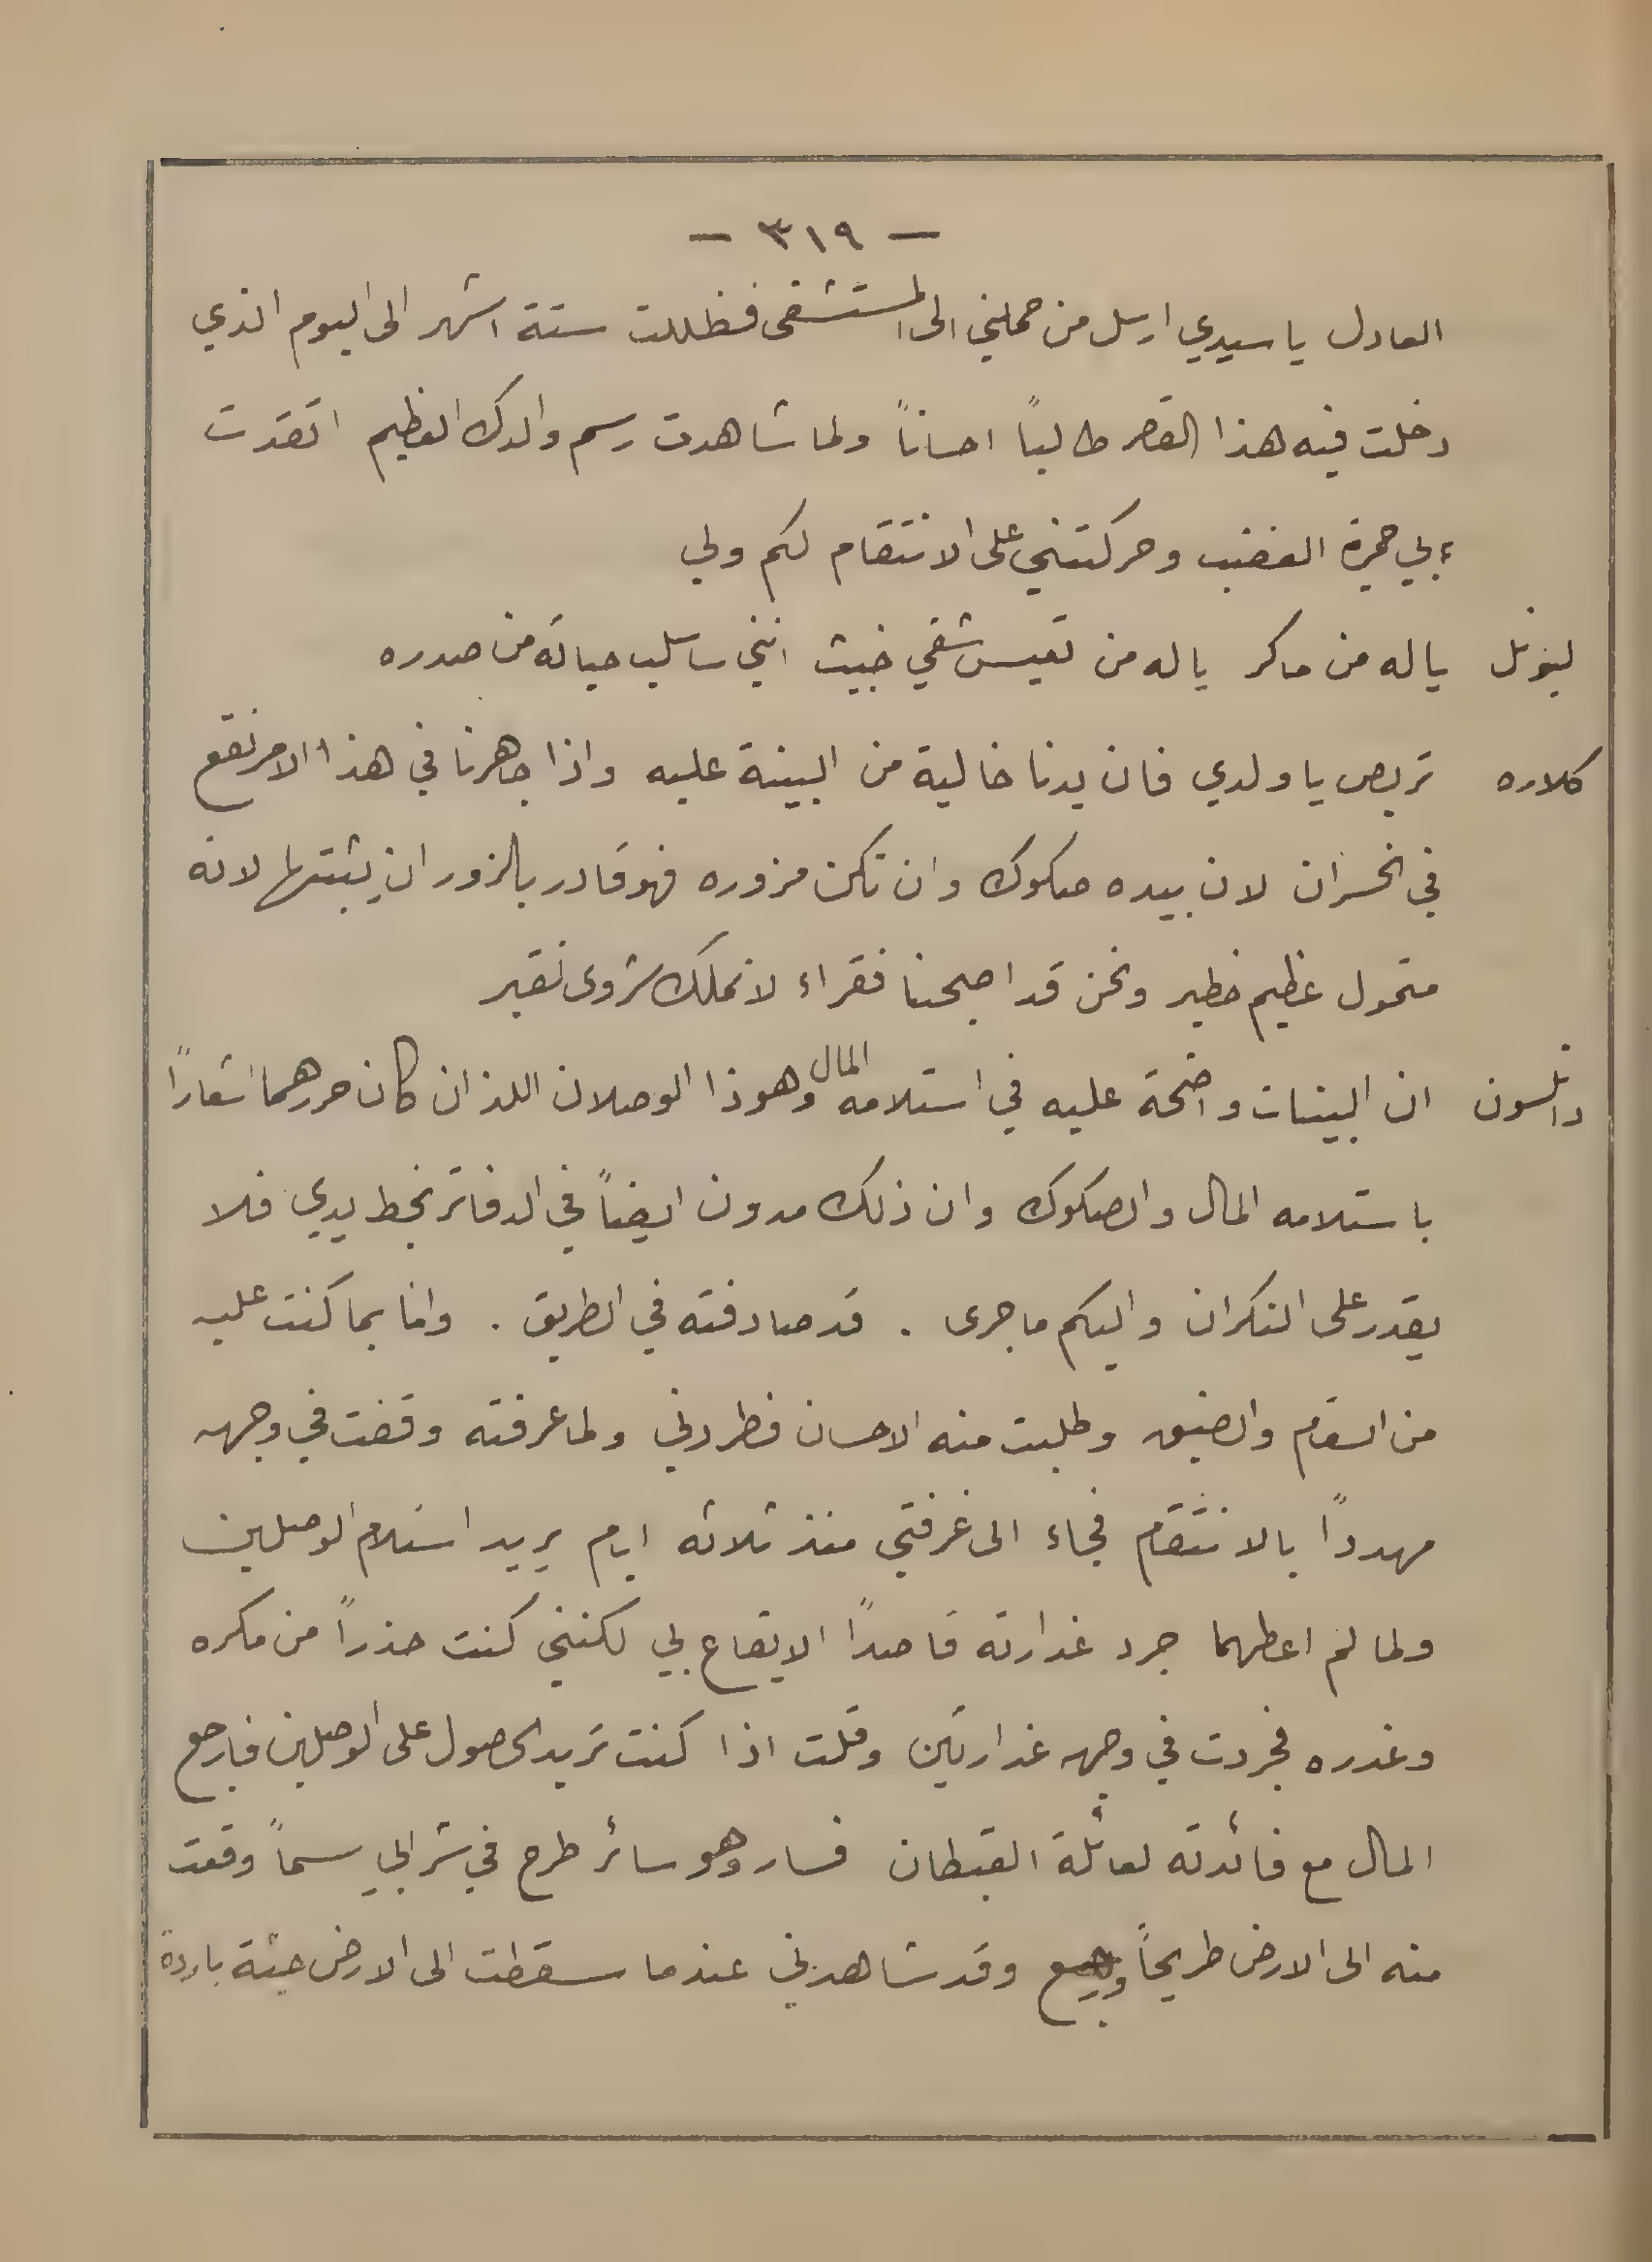 — ٣١٩ —
العادل يا سيدي ارسل من حملني الى المستشفى فظللت ستة اشهر الى اليوم الذي
دخلت فيه هذا القصر طالباً احساناً ولما شاهدت رسم والدك العظيم اتقدت
بي جمرة الغضب وحركتني على الانتقام لكم ولي
ليونل ياله من ماكر ياله من تعيس شقي خبيث انني ساسلب حياته من صدره
كلاره تربص يا ولدي فان يدنا خالية من البينة عليه واذا جاهرنا في هذا الامر نقع
في الخسران لان بيده صكوك وان تكن مزوره فهو قادر بالزور ان يثبتها لانه
متمول عظيم خطير ونحن قد اصبحنا فقراء لا نملك شروى نقير
دانلسون ان البينات واضحة عليه في استلامه المال وهوذا الوصلان اللذان كان حررهما اشعاراً
باستلامه المال والصكوك وان ذلك مدون ايضاً في الدفاتر بخط يدي فلا
يقدر على النكران واليكم ما جرى . قد صادفته في الطريق . وانا بما كنت عليه
من السقام والضيق وطلبت منه الاحسان فطردني ولما عرفته وقفت في وجهه
مهدداً بالانتقام فجاء الى غرفتي منذ ثلاثه ايام يريد استلام الوصلين
ولما لم اعطهما جرد غدارته قاصداً الايقاع بي لكنني كنت حذراً من مكره
وغدره فجردت في وجهه غدارتين وقلت اذا كنت تريد الحصول على الوصلين فارجع
المال مع فائدته لعائلة القبطان فسار وهو سائر طرح في شرابي سماً وقعت
منه الى الارض طريحاً وقد شاهدني عندما سقطت الى الارض جثة باردة